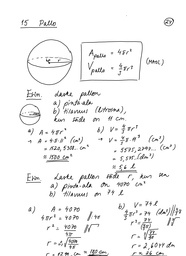 15 Pallo
24
r
A pallo = 4πr²
V pallo = 4/3 πr³
(MAOL)
Esim. Laske pallon
a) pinta-ala
b) tilavuus (litroina),
kun säde on 11 cm.
a) A = 4πr²
A = 4·π·11² (cm²)
= 1520,5308... cm²
≈ 1500 cm²
b) V = 4/3 πr³
V = 4/3 π·11³ (cm³)
= 5575,2797... (cm³)
= 5,575 (dm³)
≈ 5,6 l
Esim. Laske pallon säde r, kun sen
a) pinta-ala on 4070 cm²
b) tilavuus on 74 l
a) A = 4070 cm²
4πr² = 4070
r² = 4070/4π
r = 
b) V = 74 l
4/3 πr³ = 74 (dm³)
r = 2,6044 dm
r ≈ 26 cm